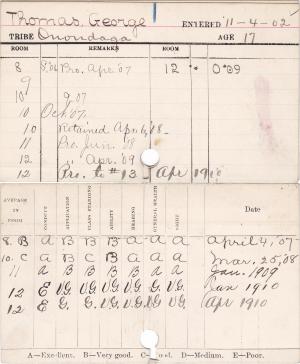 Thomas, George ENTERED 11-4-02
TRIBE Onondaga AGE 17
ROOM REMARKS ROOM
8 Pro. Apr. '07 12 0'09
9
10 " '07
10 Oct. '07.
10 Retained Apr 6, '08-
11 Pro. Jun. '08
12 " Apr. '09
12 Pro. to #13 - Apr 1910
AVERAGE IN ROOM CONDUCT APPLICATION CLASS STANDING ABILITY BEARING GENERAL HEALTH Date
8. B A B B B A A A April 4, '07-
10. C B C B A A A Mar. 25, '08
11 A B B B A A Jan. 1909
12 E V.G. V.G. V.G. V.G. V.G. V.G. Jan 1910
12 E G. G. G. V.G. V.G. Apr 1910
A—Excellent. B—Very good. C—Good. D—Medium. E—Poor.